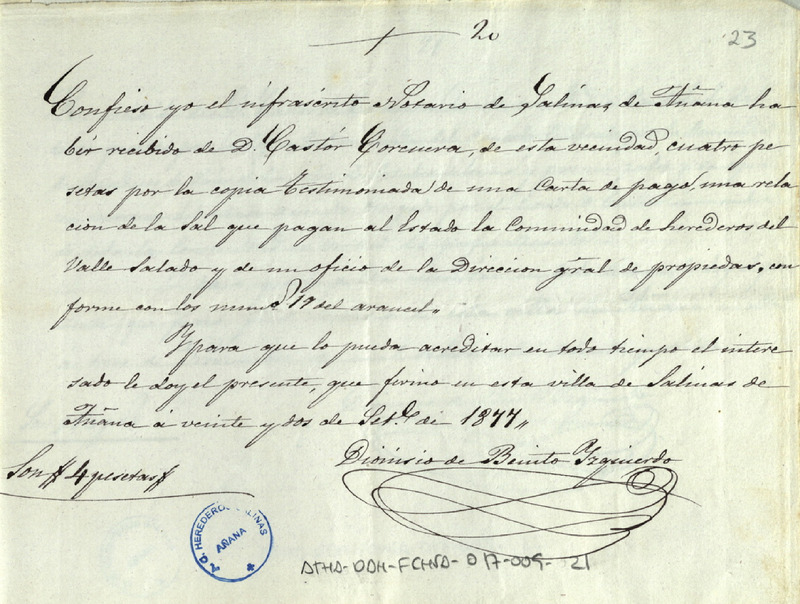 20
23
Confieso yo el infrascrito Notario de Salinas de Añana ha
ber recibido de D. Castór Corcuera, de esta vecindad, cuatro pe
setas por la copia testimoniada de una carta de pago, una rela
cion de la Sal que pagan al Estado la Comunidad de herederos del
Valle Salado y de un oficio de la Direccion gral de propiedas, con
forme con los num.s 19 del arancel.,
Y para que lo pueda acreditar en todo tiempo el intere
sado le doy el presente, que firmo en esta villa de Salinas de
Añana á veinte y dos de Set.e de 1877.,
Dionisio de Benito Yzquierdo
Son # 4 pesetas #
HEREDEROS SALINAS
AÑANA
ATHA-DAH-FCHSA-017-009-21